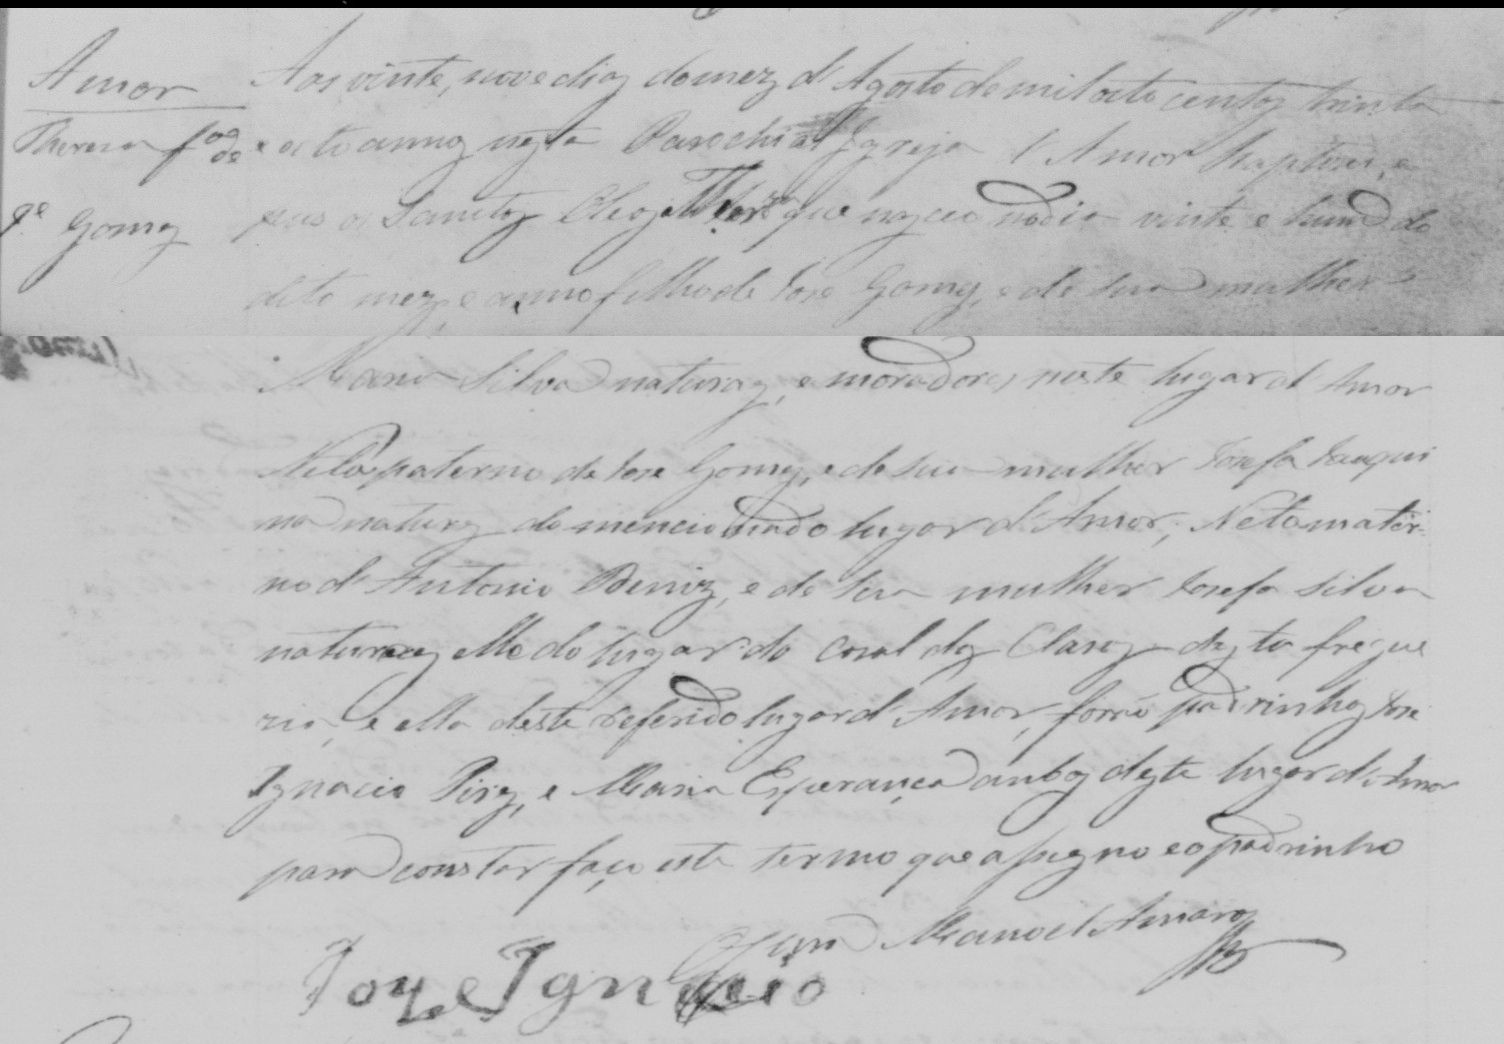 Amor
Thereza fª de
Jº Gomez
Aos vinte, nove dias do mez d'Agosto de mil oito centos trinta
e oito annos nesta Parochial Igreja d'Amor baptizei, e
pus os Santos Oleos a Thereza que nasceo no dia vinte e hum do
dito mez, e anno filho de Jose Gomes, e de sua mulher
Maria Silva naturaes, e moradores neste lugar d'Amor
Neto paterno de Jose Gomes, e de sua mulher Josefa Joaqui
na naturaes do mencionado lugar d'Amor; Neto mater-
no d'Antonio Deniz, e de sua mulher Josefa Silva
naturaes elle do lugar do Casal dos Claros desta fregue
zia, e ella deste referido lugar d'Amor, forão padrinhos Jose
Ignacio Pires, e Maria Esperança ambos deste lugar d'Amor
para constar faço este termo que assigno e o padrinho
O Cura Manoel Amaro
Joze Ignacio